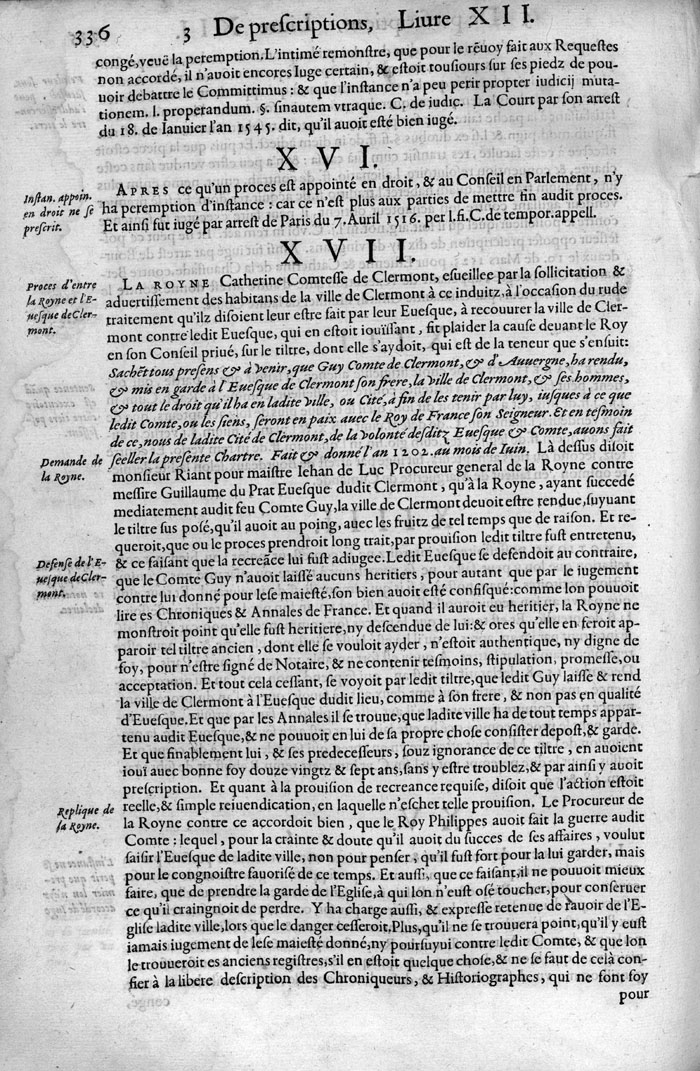 336 3 De prescriptions, Liure XII.
congé, veuë la peremption. L'intimé remonstre, que pour le rēuoy fait aux Requestes
non accordé, il n'auoit encores Iuge certain, & estoit tousiours sur ses piedz de pou-
uoir debattre le Committimus : & que l'instance n'a peu perir propter iudicij muta-
tionem. l. properandum. §. sinautem vtraque. C. de iudic. La Court par son arrest
du 18. de Ianuier l'an 1545. dit, qu'il auoit esté bien iugé.
XVI.
Instan. appoin.
en droit ne se
prescrit.
APRES ce qu'un proces est appointé en droit, & au Conseil en Parlement, n'y
ha peremption d'instance : car ce n'est plus aux parties de mettre fin audit proces.
Et ainsi fut iugé par arrest de Paris du 7. Auril 1516. per l. fi. C. de tempor. appell.
XVII.
Proces d'entre
la Royne et l'E-
uesque de Cler-
mont.
LA ROYNE Catherine Comtesse de Clermont, esueillee par la sollicitation &
aduertissement des habitans de la ville de Clermont à ce induitz, à l'occasion du rude
traitement qu'ilz disoient leur estre fait par leur Euesque, à recouurer la ville de Cler-
mont contre ledit Euesque, qui en estoit iouïssant, fit plaider la cause deuant le Roy
en son Conseil priué, sur le tiltre, dont elle s'aydoit, qui est de la teneur que s'ensuit:
Sachēt tous presens & à venir, que Guy Comte de Clermont, & d'Auuergne, ha rendu,
& mis en garde à l'Euesque de Clermont son frere, la ville de Clermont, & ses hommes,
& tout le droit qu'il ha en ladite ville, ou Cité, à fin de les tenir par luy, iusques à ce que
ledit Comte, ou les siens, seront en paix auec le Roy de France son Seigneur. Et en tesmoin
de ce, nous de ladite Cité de Clermont, de la volonté desditz Euesque & Comte, auons fait
séeller la presente Chartre. Fait & donné l'an 1202. au mois de Iuin. Là dessus disoit
Demande de
la Royne.
monsieur Riant pour maistre Iehan de Luc Procureur general de la Royne contre
messire Guillaume du Prat Euesque dudit Clermont, qu'à la Royne, ayant succedé
mediatement audit feu Comte Guy, la ville de Clermont deuoit estre rendue, suyuant
le tiltre sus posé, qu'il auoit au poing, auec les fruitz de tel temps que de raison. Et re-
queroit, que ou le proces prendroit long trait, par prouision ledit tiltre fust entretenu,
Defense de l'E-
uesque de Cler-
mont.
& ce faisant que la recreāce lui fust adiugee. Ledit Euesque se defendoit au contraire,
que le Comte Guy n'auoit laissé aucuns heritiers, pour autant que par le iugement
contre lui donné pour lese maiesté, son bien auoit esté confisqué: comme lon pouuoit
lire es Chroniques & Annales de France. Et quand il auroit eu heritier, la Royne ne
monstroit point qu'elle fust heritiere, ny descendue de lui: & ores qu'elle en feroit ap-
paroir tel tiltre ancien, dont elle se vouloit ayder, n'estoit authentique, ny digne de
foy, pour n'estre signé de Notaire, & ne contenir tesmoins, stipulation, promesse, ou
acceptation. Et tout cela cessant, se voyoit par ledit tiltre, que ledit Guy laisse & rend
la ville de Clermont à l'Euesque dudit lieu, comme à son frere, & non pas en qualité
d'Euesque. Et que par les Annales il se trouue, que ladite ville ha de tout temps appar-
tenu audit Euesque, & ne pouuoit en lui de sa propre chose consister depost, & garde.
Et que finablement lui, & ses predecesseurs, souz ignorance de ce tiltre, en auoient
iouï auec bonne foy douze vingtz & sept ans, sans y estre troublez, & par ainsi y auoit
prescription. Et quant à la prouision de recreance requise, disoit que l'action estoit
Replique de
la Royne.
reelle, & simple reiuendication, en laquelle n'eschet telle prouision. Le Procureur de
la Royne contre ce accordoit bien, que le Roy Philippes auoit fait la guerre audit
Comte : lequel, pour la crainte & doute qu'il auoit du succes de ses affaires, voulut
saisir l'Euesque de ladite ville, non pour penser, qu'il fust fort pour la lui garder, mais
pour le congnoistre fauorisé de ce temps. Et aussi, que ce faisant, il ne pouuoit mieux
faire, que de prendre la garde de l'Eglise, à qui lon n'eust osé toucher, pour conseruer
ce qu'il craingnoit de perdre. Y ha charge aussi, & expresse retenue de rauoir de l'E-
glise ladite ville, lors que le danger cesseroit, Plus, qu'il ne se trouuera point, qu'il y eust
iamais iugement de lese maiesté donné, ny poursuyui contre ledit Comte, & que lon
le trouueroit es anciens registres, s'il en estoit quelque chose, & ne se faut de celà con-
fier à la libere description des Chroniqueurs, & Historiographes, qui ne sont foy
pour